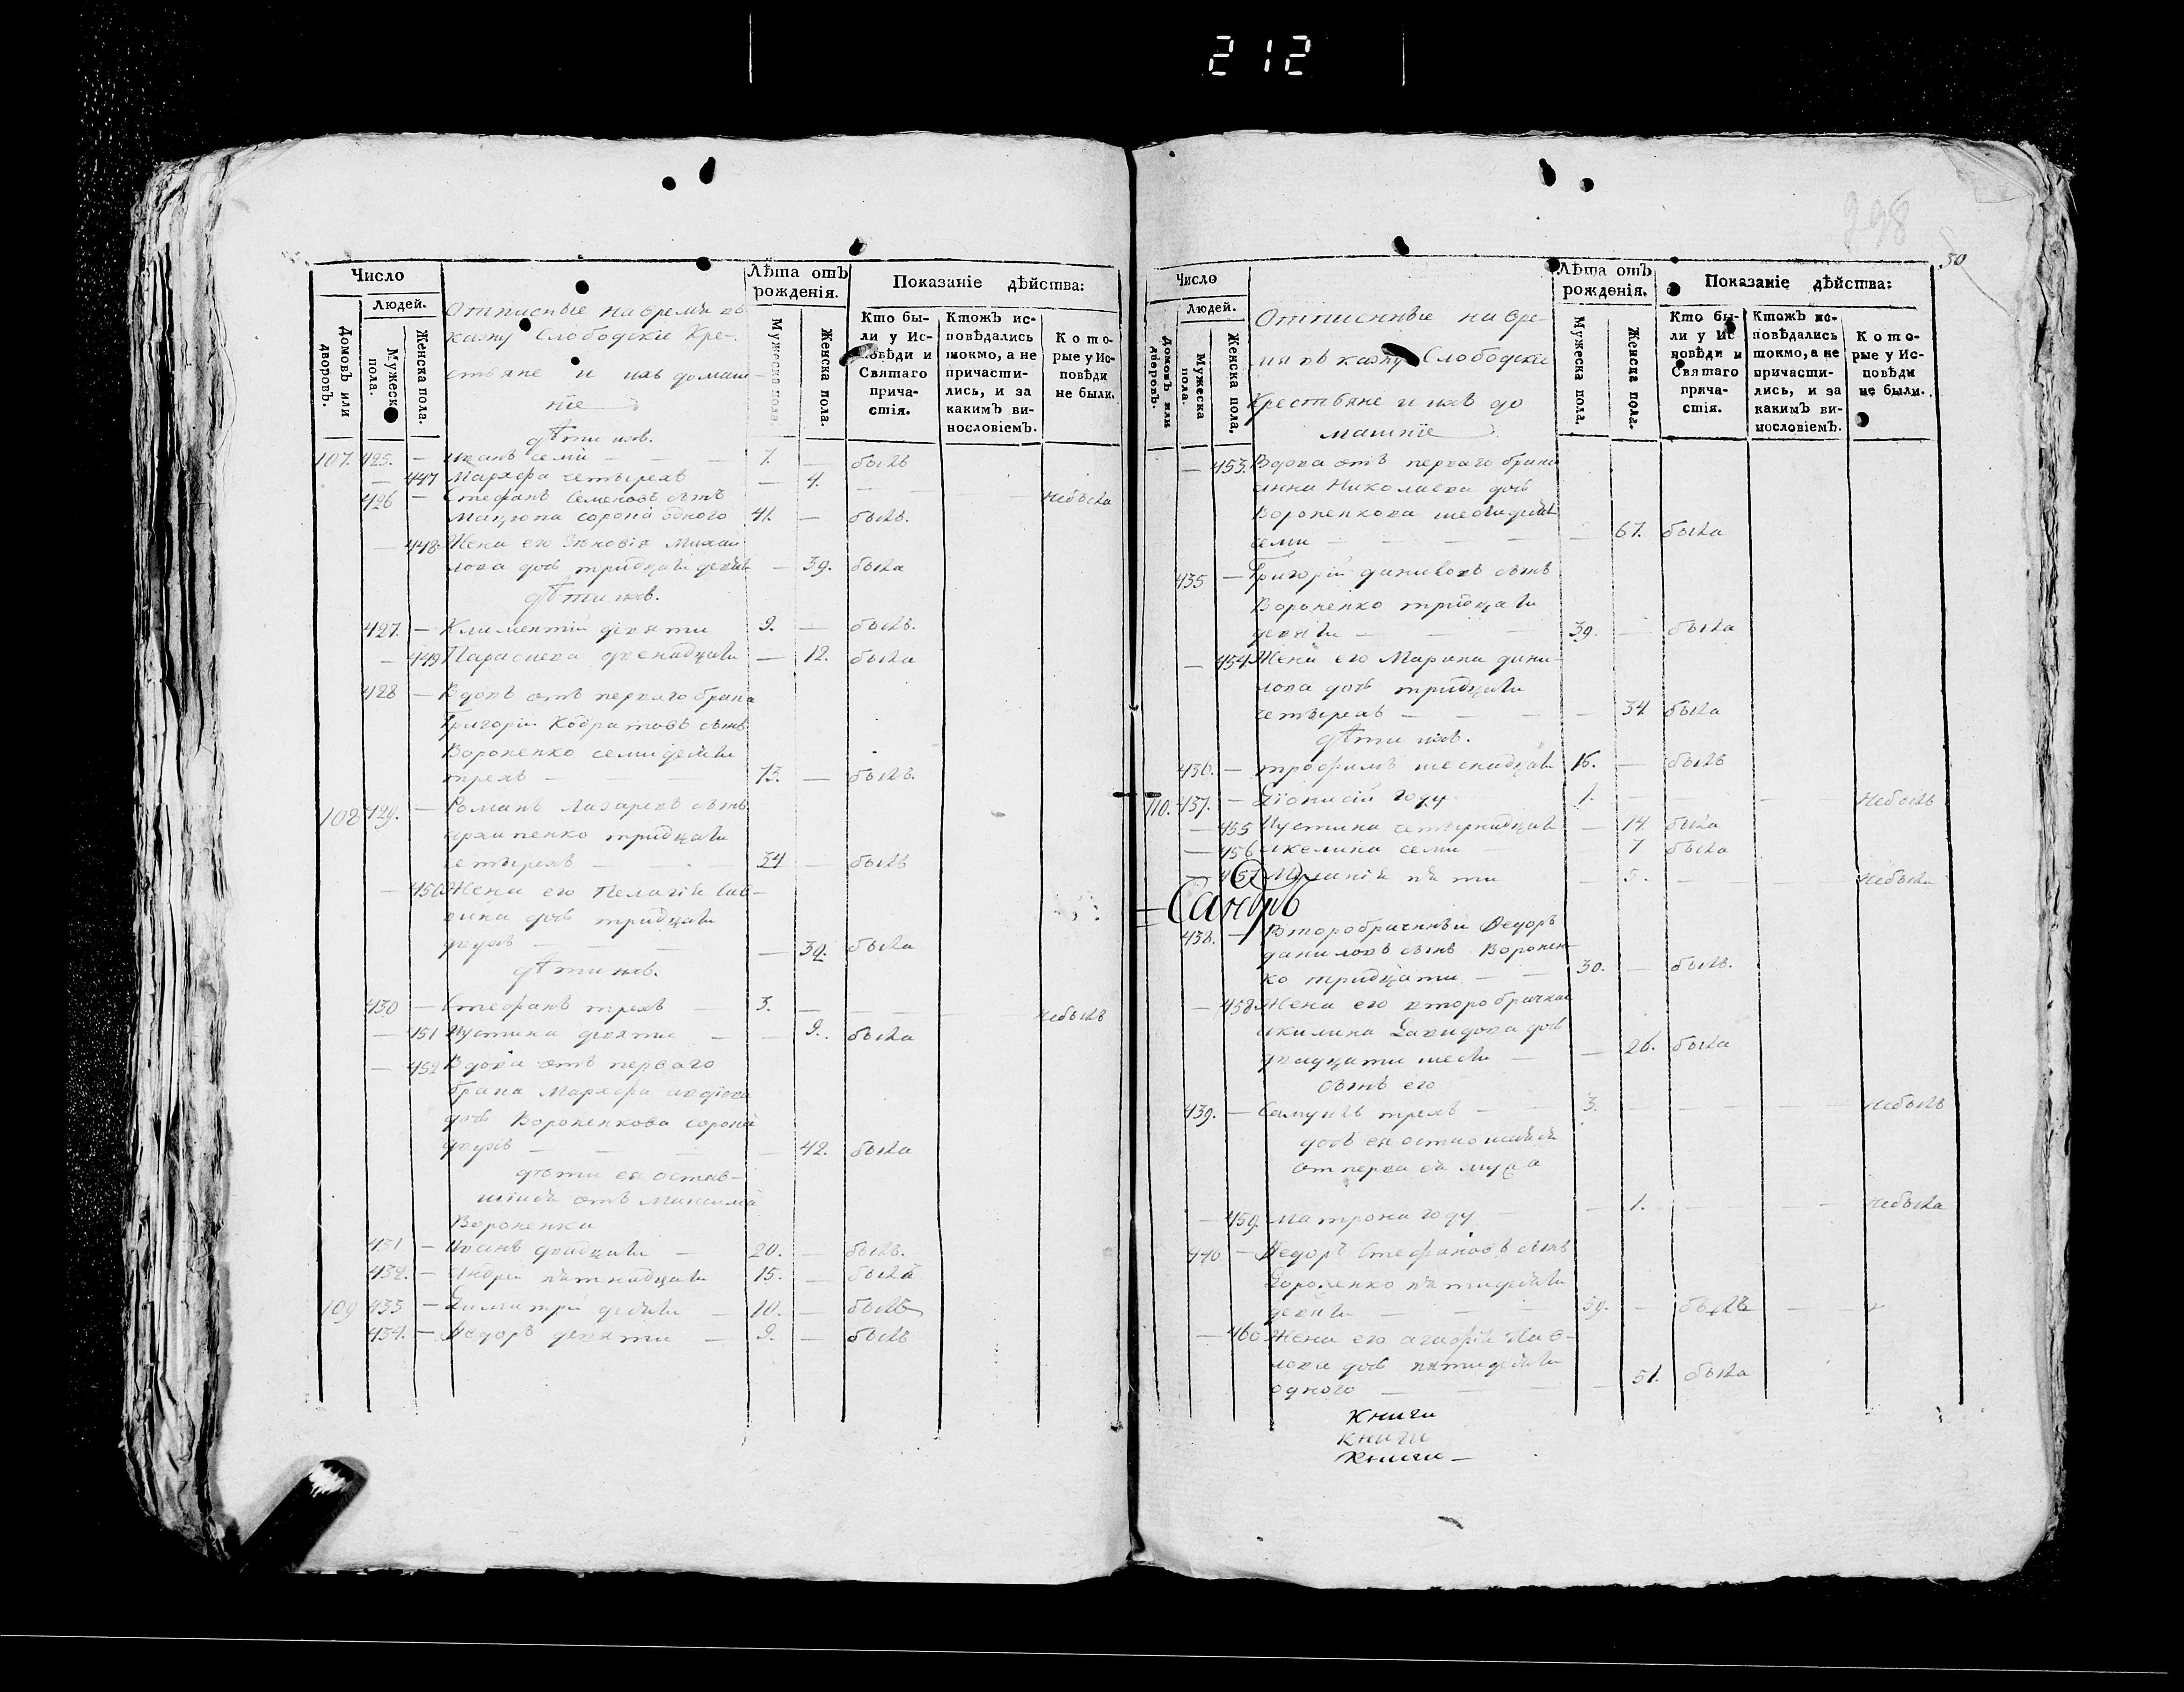 212
298
50
Число
Людей.
Домовъ или дворовъ.
Мужеска пола.
Женска пола.
Отписные на время въ
казну Слободскіе Кре-
стьяне и ихъ домаш-
ніе
Лѣта отъ рожденія.
Мужеска пола.
Женска пола.
Показаніе дѣйства:
Кто бы-
ли у Ис-
повѣди и
Святаго
прича-
стія.
Ктожъ ис-
повѣдались
токмо, а не
причасти-
лись, и за
какимъ ви-
нословіемъ.
Кото-
рые у Ис-
повѣди
не были.
дѣти ихъ.
107. 425. — Иванъ семи — 7. — былъ
— 447 Марѳа четырехъ — 4. — — небыла
426 — Стефанъ Семеновъ сынъ
сорока одного 41. — былъ.
— 448 Жена его Зѣновія Михай
лова дочь тридцати девяти — 39. была
дѣти ихъ.
427. — Климентій девяти 9. — былъ.
— 449 Параскева двенадцати — 12. была
428 — Вдовъ отъ перваго брака
Григорій Кодратовъ сынъ
Вороненко семидесяти
трехъ — 73. — былъ.
108 429. — Романъ Лазаревъ сынъ
Архипенко тридцати
четырехъ — 34 — былъ
— 450 Жена его Пелагія Сав-
вина дочь тридцати
двухъ — — 32. была
дѣти ихъ.
430 — Стефанъ трехъ — 3. — — небылъ
— 451 Иустина девяти — — 9. была
— 452 Вдова отъ перваго
брака Марѳа
дочь Вороненкова сорока
двухъ — — 42. была
дѣти ея остав-
шіися отъ Максима
Вороненка
431 — Иванъ двадцати — 20. — былъ.
432. — Андрей пятнадцати 15. — былъ
109 433 — Димитрій десяти — 10. — былъ
434. — Ѳедоръ девяти — 9. — былъ
Число
Людей.
Домовъ или дворовъ.
Мужеска пола.
Женска пола.
Отписныіе на вре-
мя въ казну Слободскіе
Крестьяне и ихъ до
машніе
Лѣта отъ рожденія.
Мужеска пола.
Женска пола.
Показаніе дѣйства:
Кто бы-
ли у Ис
повѣди и
Святаго
прича-
стія.
Ктожъ ис-
повѣдались
токмо, а не
причасти-
лись, и за
какимъ ви-
нословіемъ.
Кото-
рые у Ис-
повѣди
не были.
— 453. Вдова отъ перваго брака
Анна Николаева дочь
Вороненкова шестидесяти
семи — — 67. была
435 — Григорій Даниловъ сынъ
Вороненко тридцати
девяти — 39. — была
— 454 Жена его Марина Дани-
лова дочь тридцати
четырехъ — — 34 была
дѣти ихъ.
436. — Трофимъ шеснадцати 16. — былъ
110. 437. — Діонисій году 1. — — Небылъ
— 455 Иустина четырнадцати — 14. была
— 456 Акелина семи — 7 была
— 457 Меланія пяти — 5. — — Небыла
438. — Второбрачный Ѳедоръ
Даниловъ сынъ Воронен-
ко тридцати — 30. — былъ.
— 458 Жена его второбрачная
Акилина Давидова дочь
двадцати шести — — 26. была
Сынъ его
439. — Самуилъ трехъ — 3. — — — Небылъ
дочь ея оставшаяся
от перваго мужа
— 459. Матрона году — — 1. — — — Небыла
440 — Ѳедоръ Стефановъ сынъ
пятидесяти
девяти — 59. — былъ —
— 460 Жена его Агафія Пав-
лова дочь пятидесяти
одного — — 51. была
Книги
Книги
Книги —